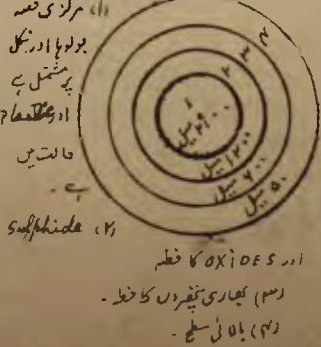 (۱) مرکزی قصہ
جو لوہا اور نکل
پر مشتمل ہے
اور Plastic
حالت میں
ہے۔
(۲) Sulphide
اور OXIDES کا خطہ
(۳) بھاری پتھروں کا خطہ۔
(۴) بالائی سطح۔
۱
۲
۳
۴
۲۱۰۰ میل
۱۲۰۰ میل
۷۰۰ میل
۵۰ میل